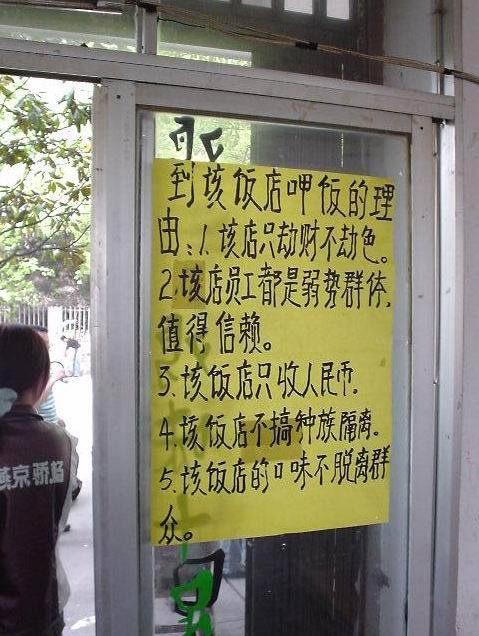 到该饭店呷饭的理
由:1.该店只劫财不劫色。
2.该店员工都是弱势群体,
值得信赖。
3.该饭店只收人民币.
4.该饭店不搞种族隔离.
5.该饭店的口味不脱离群
众。
燕京骄杨